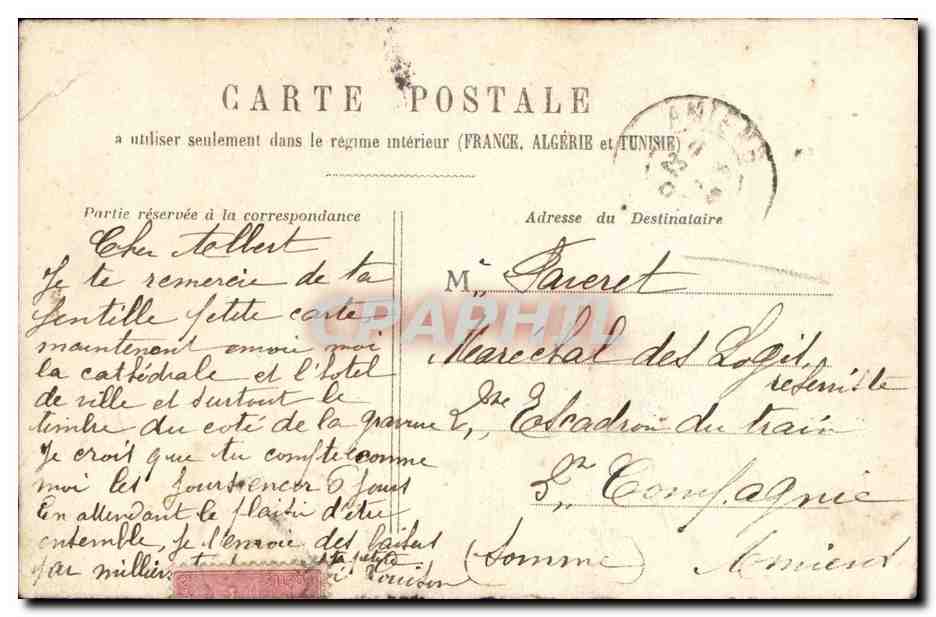 CARTE POSTALE
a utiliser seulement dans le régime intérieur (FRANCE, ALGÉRIE et TUNISIE)
AMIENS
Partie réservée à la correspondance
Cher Albert
Je te remercie de ta
gentille petite carte
maintenant envoie moi
la cathédrale et l'hotel
de ville et surtout le
timbre du coté de la gravure
Je croit que tu compte comme
moi les jours encor 6 jours
En attendant le plaisir d'être
ensemble, je t'envoie des baisers
par milliers
ta petite
Louison
Adresse du Destinataire
Mr Faveret
Maréchal des Logis
reserviste
2me Escadron du train
3me Compagnie
(Somme) Amiens
CPAPHIL